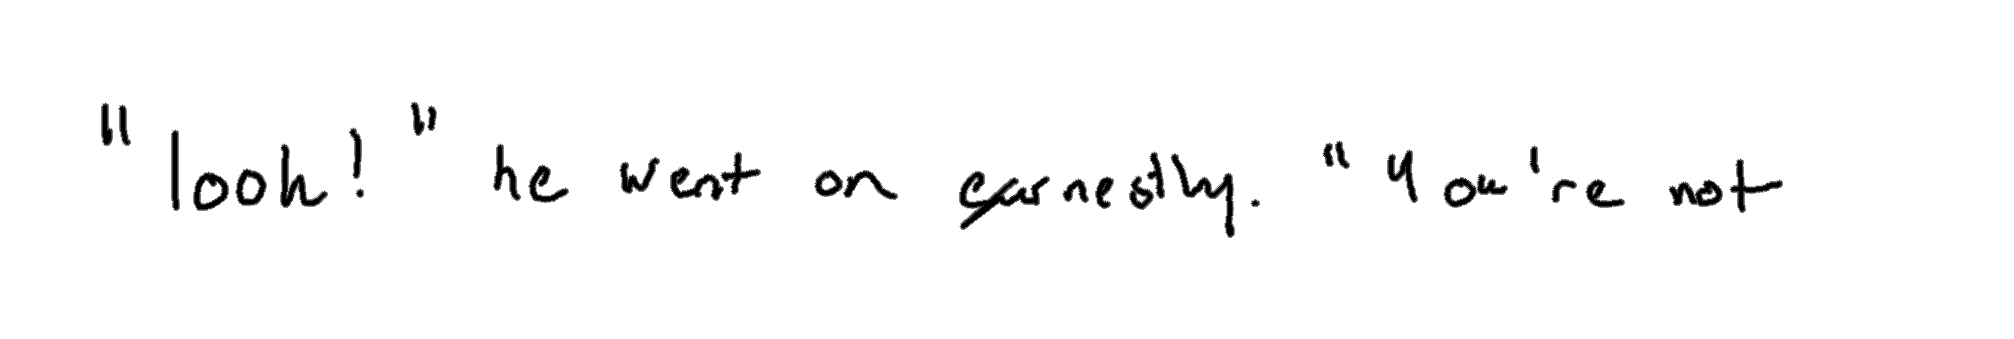 "look!" he went on earnestly. "You're not